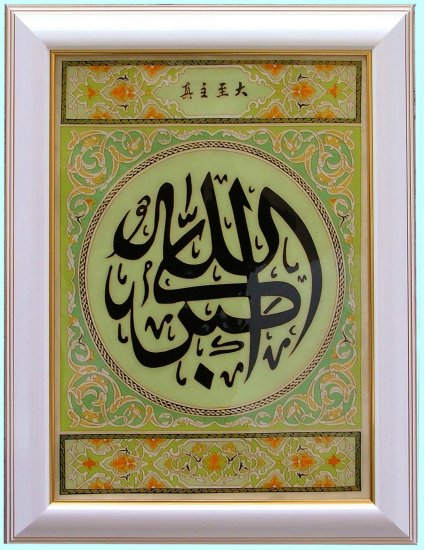 真主至大
الله أكبر